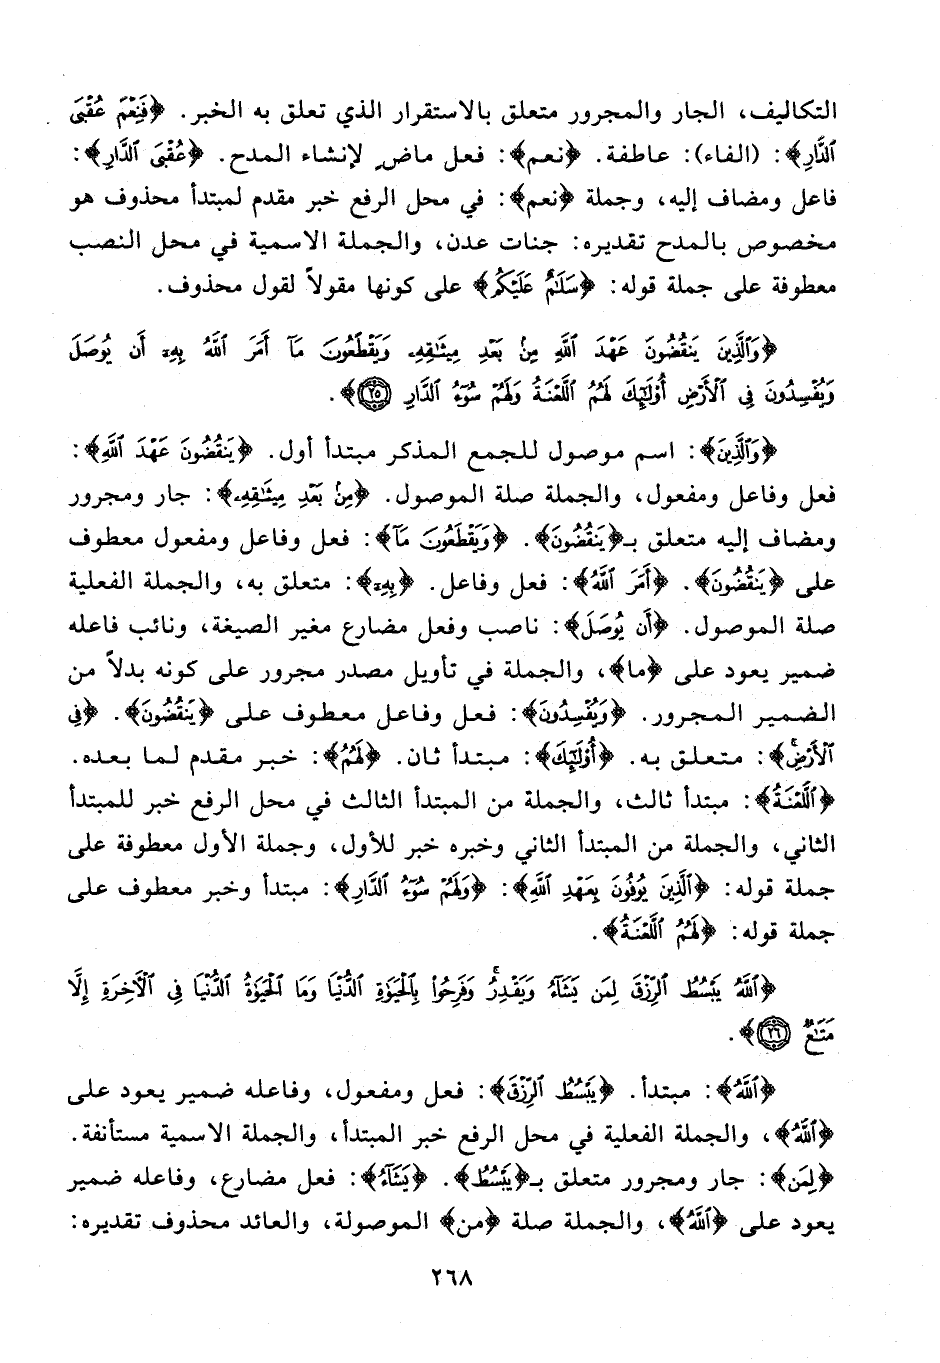 التكاليف، الجار والمجرور متعلق بالاستقرار الذي تعلق به الخبر. ﴿فَنِعْمَ عُقْبَى
ٱلدَّارِ﴾: (الفاء): عاطفة. ﴿نعم﴾: فعل ماضٍ لإنشاء المدح. ﴿عُقْبَى ٱلدَّارِ﴾:
فاعل ومضاف إليه، وجملة ﴿نعم﴾: في محل الرفع خبر مقدم لمبتدأ محذوف هو
مخصوص بالمدح تقديره: جنات عدن، والجملة الاسمية في محل النصب
معطوفة على جملة قوله: ﴿سَلَٰمٌ عَلَيْكُم﴾ على كونها مقولاً لقول محذوف.
﴿وَٱلَّذِينَ يَنقُضُونَ عَهْدَ ٱللَّهِ مِنۢ بَعْدِ مِيثَٰقِهِۦ وَيَقْطَعُونَ مَآ أَمَرَ ٱللَّهُ بِهِۦٓ أَن يُوصَلَ
وَيُفْسِدُونَ فِى ٱلْأَرْضِ أُو۟لَٰٓئِكَ لَهُمُ ٱللَّعْنَةُ وَلَهُمْ سُوٓءُ ٱلدَّارِ ٢٥﴾.
﴿وَٱلَّذِينَ﴾: اسم موصول للجمع المذكر مبتدأ أول. ﴿يَنقُضُونَ عَهْدَ ٱللَّهِ﴾:
فعل وفاعل ومفعول، والجملة صلة الموصول. ﴿مِنۢ بَعْدِ مِيثَٰقِهِۦ﴾: جار ومجرور
ومضاف إليه متعلق بـ﴿يَنقُضُونَ﴾. ﴿وَيَقْطَعُونَ مَآ﴾: فعل وفاعل ومفعول معطوف
على ﴿يَنقُضُونَ﴾. ﴿أَمَرَ ٱللَّهُ﴾: فعل وفاعل. ﴿بِهِۦٓ﴾: متعلق به، والجملة الفعلية
صلة الموصول. ﴿أَن يُوصَلَ﴾: ناصب وفعل مضارع مغير الصيغة، ونائب فاعله
ضمير يعود على ﴿ما﴾، والجملة في تأويل مصدر مجرور على كونه بدلاً من
الضمير المجرور. ﴿وَيُفْسِدُونَ﴾: فعل وفاعل معطوف على ﴿يَنقُضُونَ﴾. ﴿فِى
ٱلْأَرْضِ﴾: متعلق به. ﴿أُو۟لَٰٓئِكَ﴾: مبتدأ ثان. ﴿لَهُمُ﴾: خبر مقدم لما بعده.
﴿ٱللَّعْنَةُ﴾: مبتدأ ثالث، والجملة من المبتدأ الثالث في محل الرفع خبر للمبتدأ
الثاني، والجملة من المبتدأ الثاني وخبره خبر للأول، وجملة الأول معطوفة على
جملة قوله: ﴿ٱلَّذِينَ يُوفُونَ بِعَهْدِ ٱللَّهِ﴾: ﴿وَلَهُمْ سُوٓءُ ٱلدَّارِ﴾: مبتدأ وخبر معطوف على
جملة قوله: ﴿لَهُمُ ٱللَّعْنَةُ﴾.
﴿ٱللَّهُ يَبْسُطُ ٱلرِّزْقَ لِمَن يَشَآءُ وَيَقْدِرُ ۚ وَفَرِحُوا۟ بِٱلْحَيَوٰةِ ٱلدُّنْيَا وَمَا ٱلْحَيَوٰةُ ٱلدُّنْيَا فِى ٱلْءَاخِرَةِ إِلَّا
مَتَٰعٌ ٢٦﴾.
﴿ٱللَّهُ﴾: مبتدأ. ﴿يَبْسُطُ ٱلرِّزْقَ﴾: فعل ومفعول، وفاعله ضمير يعود على
﴿ٱللَّهُ﴾، والجملة الفعلية في محل الرفع خبر المبتدأ، والجملة الاسمية مستأنفة.
﴿لِمَن﴾: جار ومجرور متعلق بـ﴿يَبْسُطُ﴾. ﴿يَشَآءُ﴾: فعل مضارع، وفاعله ضمير
يعود على ﴿ٱللَّهُ﴾، والجملة صلة ﴿من﴾ الموصولة، والعائد محذوف تقديره:
٢٦٨